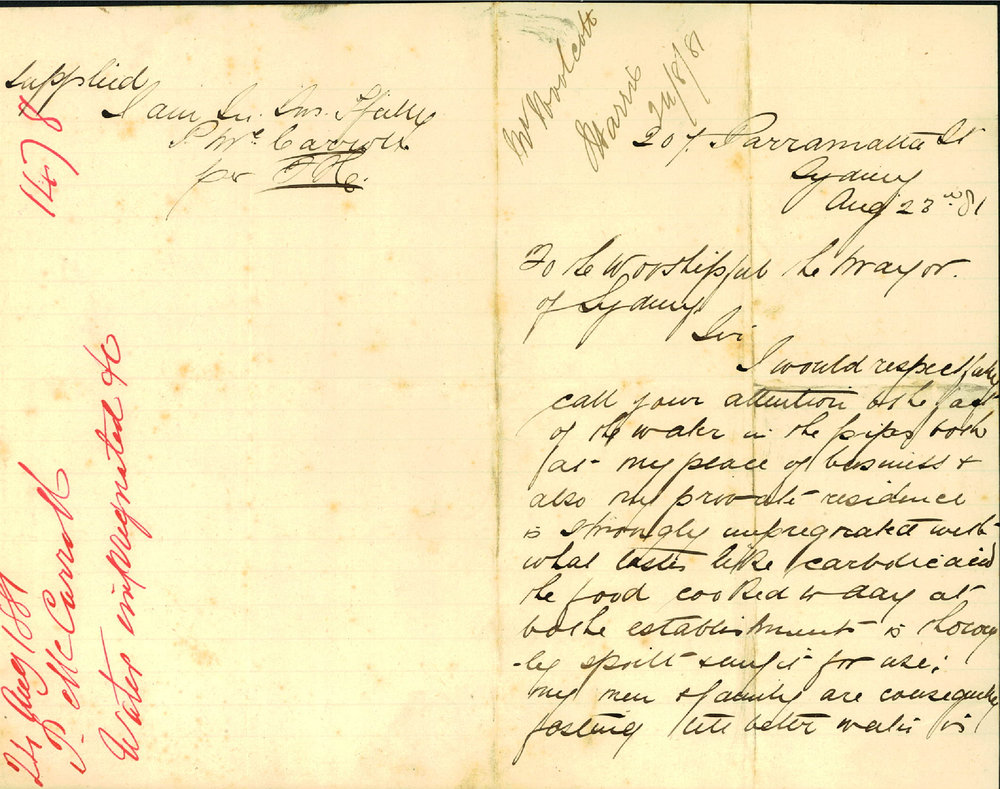 207 Parramatta St
Sydney
Aug 23rd 81
To the Worshipful the Mayor.
of Sydney
Sir
I would respectfully
call your attention to the fact
of the water in the pipes both
at my place of business &
also my private residence
is strongly impregnated with
what tastes like carbolic acid
the food cooked to day at
bothe establishment is thorou
-ly spoilt & unfit for use;
my men & family are consequently
fasting till beter water is
supplied
I am Sir
P McCarroll
per
Mr Woolcott
24/8/81
1478
24 Aug 1881
P. McCarroll
Water impregnated &c